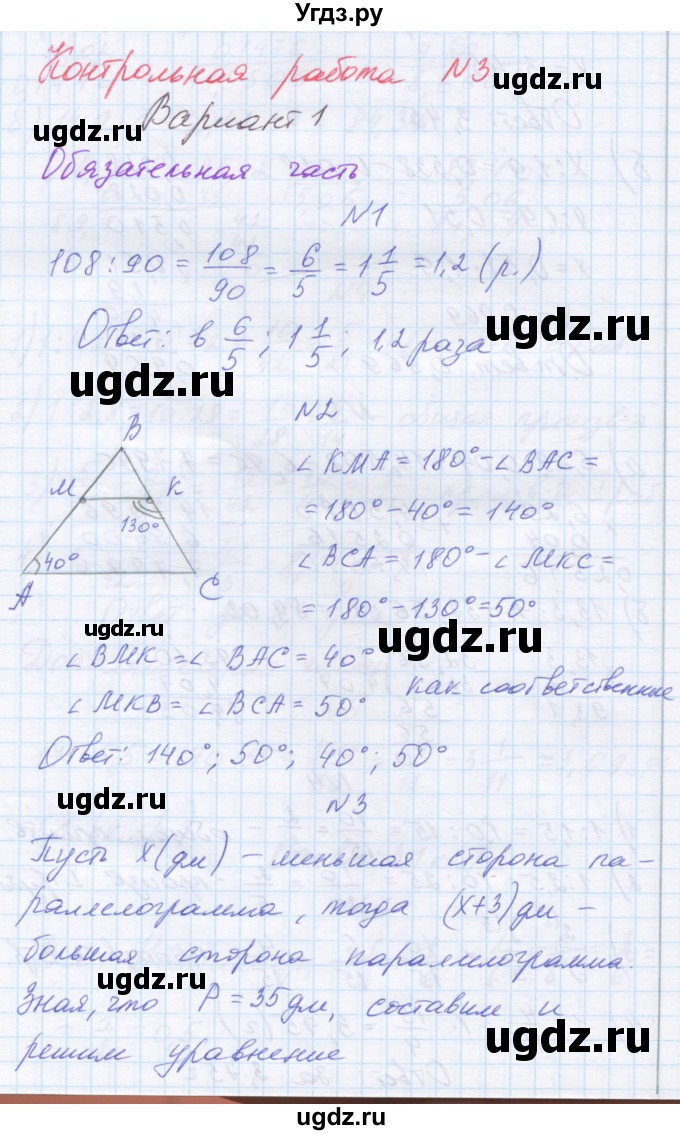 Угдз.ру
Контрольная работа №3
ugdz.ru
Вариант 1
ugdz.ru
Обязательная часть
№1
108 : 90 = 108/90 = 6/5 = 1 1/5 = 1,2 (р.)
ugdz.ru
Ответ: в 6/5; 1 1/5; 1,2 раза
ugdz.ru
ugdz.ru
№2
B
M K
130°
40°
A C
∠KMA = 180° - ∠BAC =
= 180° - 40° = 140°
ugdz.ru
∠BCA = 180° - ∠MKC =
= 180° - 130° = 50°
ugdz.ru
ugdz.ru
∠BMK = ∠BAC = 40°
∠MKB = ∠BCA = 50° как соответственные
Ответ: 140°; 50°; 40°; 50°
ugdz.ru
ugdz.ru
№3
Пусть x (дм) – меньшая сторона па-
раллелограмма, тогда (x+3) дм –
большая сторона параллелограмма.
ugdz.ru
Зная, что P = 35 дм, составим и
ugdz.ru
решим уравнение
ugdz.ru
ugdz.ru